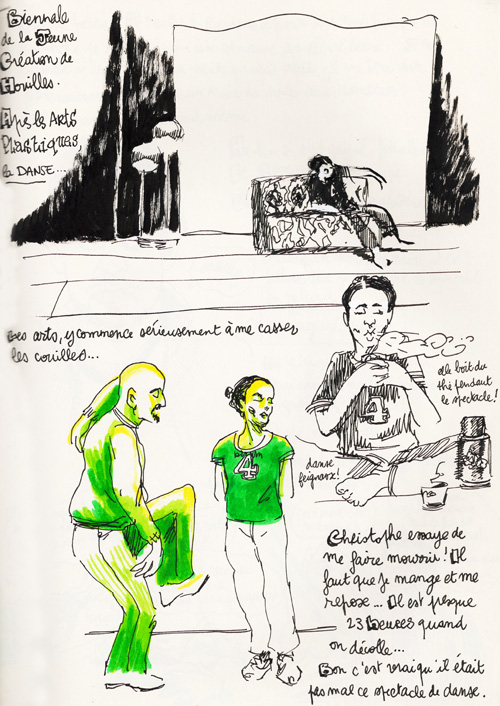 Biennale
de la Jeune
Création de
Houilles.
Après les Arts
Plastiques,
la DANSE...
Les arts, y commence sérieusement à me casser
les couilles...
elle boit du
thé pendant
le spectacle!
4
danse
feignasse!
4
Christophe essaye de
me faire mourrir! Il
faut que je mange et me
repose... Il est presque
23 heures quand
on décolle...
Bon c'est vrai qu'il était
pas mal ce spectacle de danse.